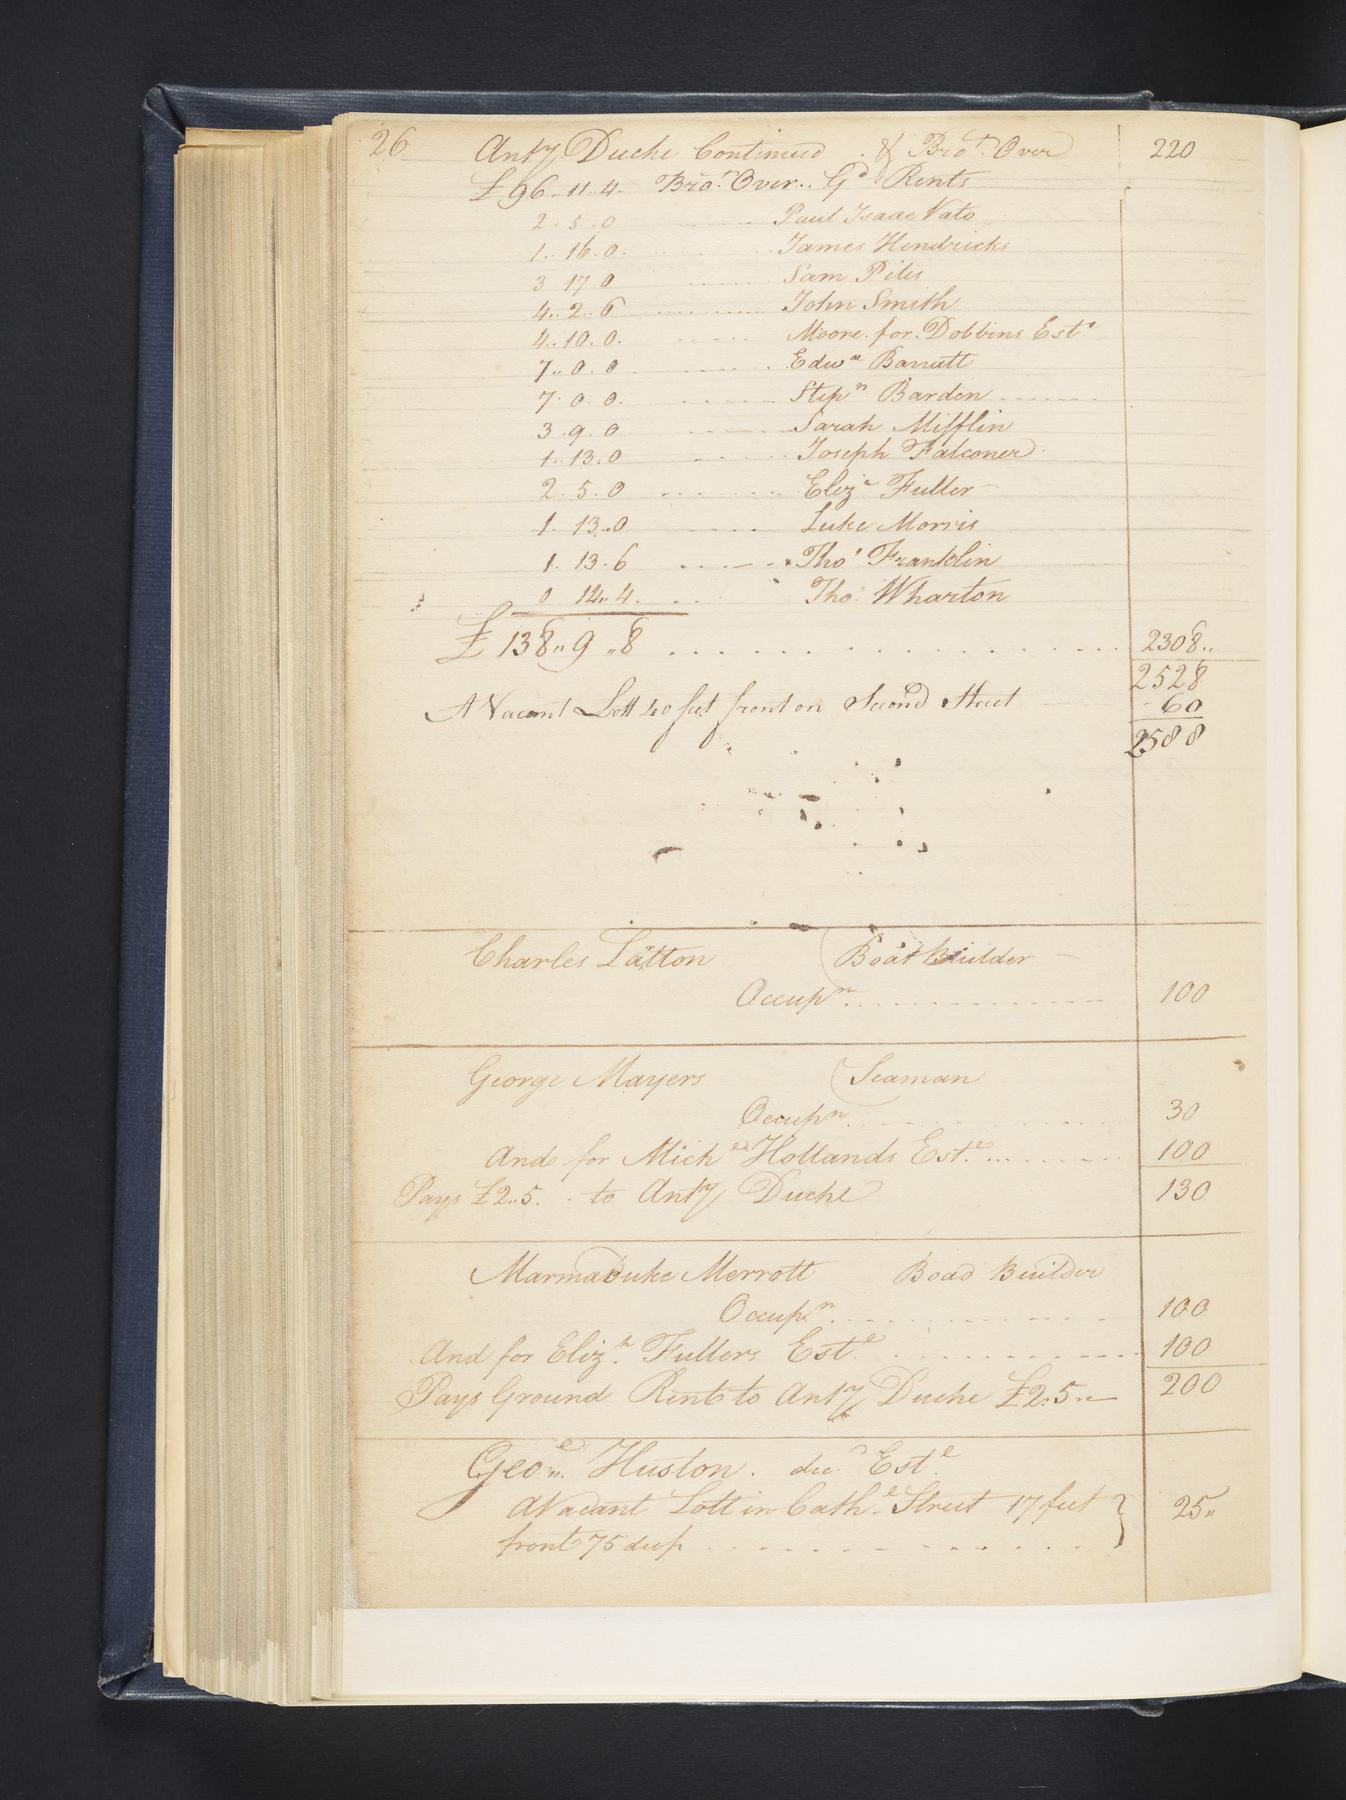 26 Antʸ Duche Continued & Broᵗ Over 220
£96..11..4 Broᵗ Over.. Gᵈ Rents
2..5..0 Paul Isaac Vato
1..16..0 James Hendricks
3 17 0 Sam Piles
4..2..6 John Smith
4..10..0 Moore for Dobbins Estᵉ
7..0..0 Edwᵈ Barratt
7..0..0 Stepⁿ Barden
3..9..0 Sarah Mifflin
1..13..0 Joseph Falconer
2..5..0 Elizᵃ Fuller
1..13..0 Luke Morris
1..13..6 Thoˢ Franklin
0 14..4 Tho: Wharton
£138..9..8 2308..
2528
A Vacant Lott 40 feet front on Second Street 60
2588
Charles Latton Boat Builder
Occupⁿ 100
George Mayers Seaman
Occupⁿ 30
And for Michˡ Hollands Estᵉ 100
Pays £2..5. to Antʸ Duche 130
Marmaduke Merrott Boad Builder
Occupⁿ 100
And for Elizʰ Fullers Estᵉ 100
Pays Ground Rent to Antʸ Duche £2..5.. 200
Geoᵉ Huston. decᵈ Estᵉ
A Vacant Lott in Cathᵉ Street 17 feet 25..
front 75 deep